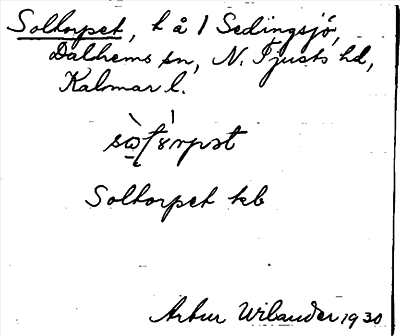 Soltorpet, t å 1 Sedingsjö,
Dalhems sn, N. Tjusts hd,
Kalmar l.
Soltorpet kb
Arthur Wilander 1930